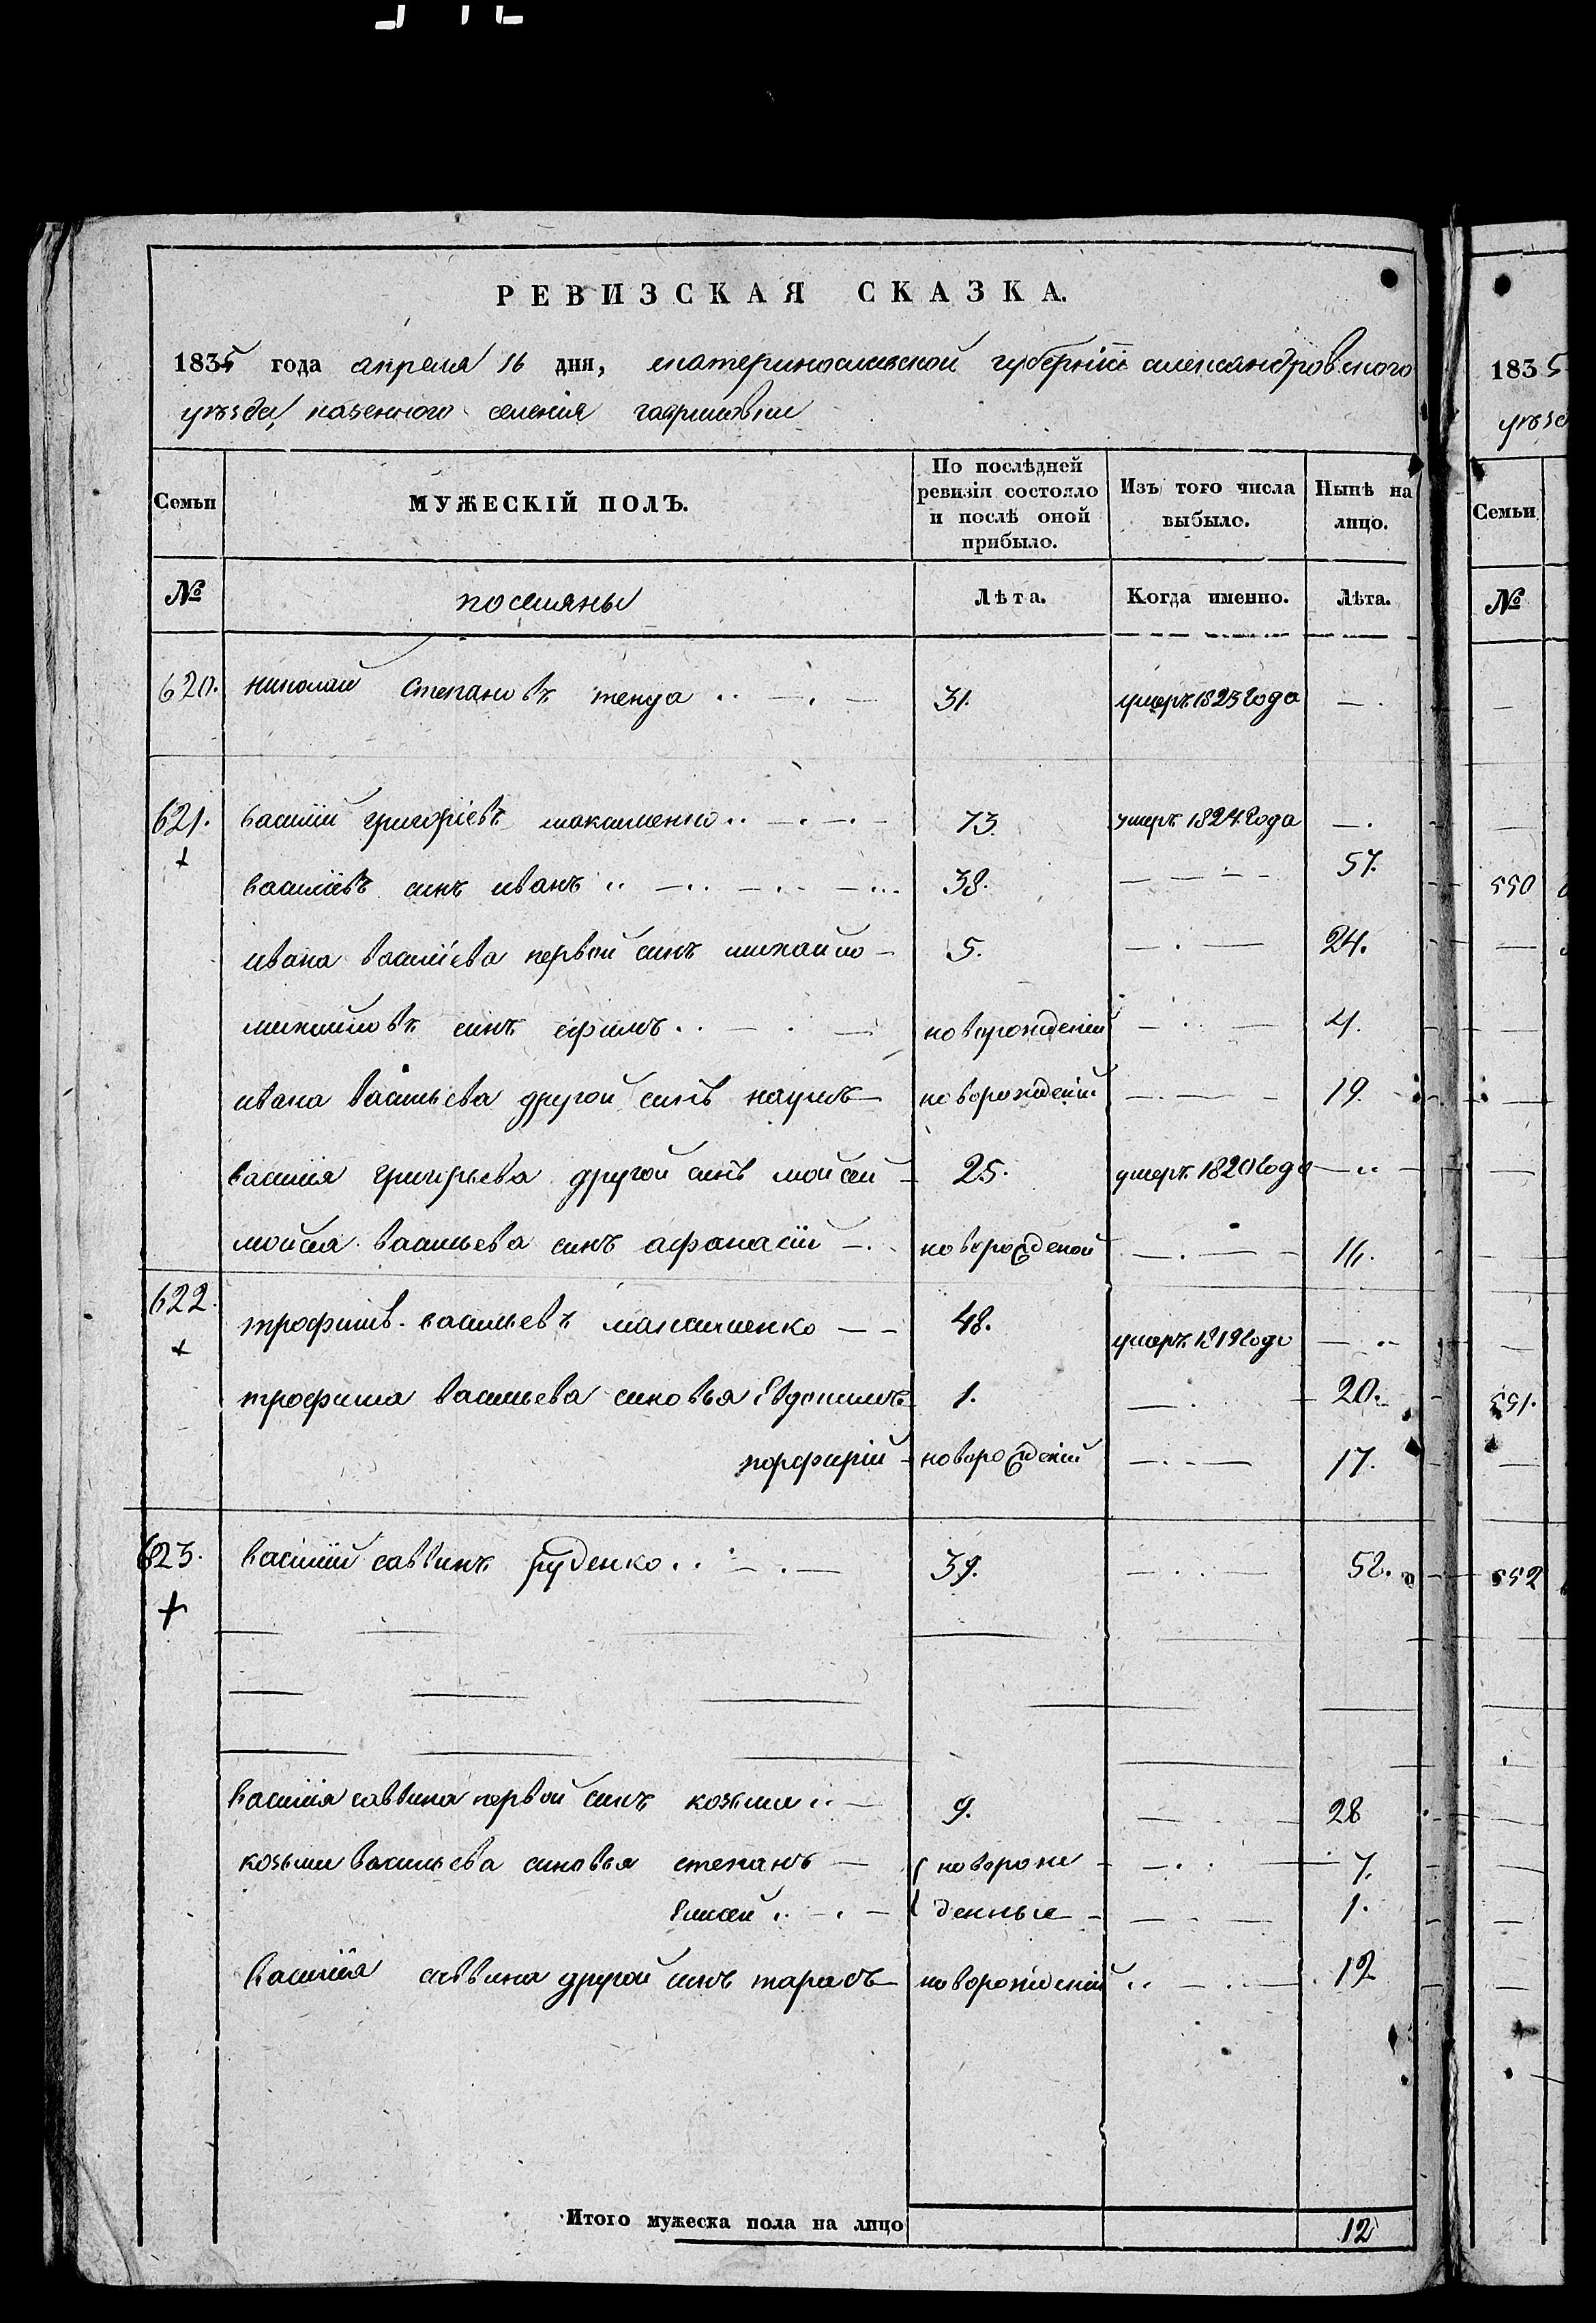 РЕВИЗСКАЯ СКАЗКА.
1835 года апреля 16 дня, екатеринославской губернiи александровского
уезда, казенного селенiя гавриловки
Семьи
МУЖЕСКIЙ ПОЛЪ.
По послѣдней ревизiи состояло и послѣ оной прибыло.
Изъ того числа выбыло.
Нынѣ на лицо.
№ поселяны Лѣта. Когда именно. Лѣта.
620. николай Степановъ 31. умеръ 1825 года — .
621. василiй григорiевъ максименко 73. умеръ 1824 года — .
василiевъ синъ иванъ 38. — 57.
ивана василiева первой синъ михайло 5. — 24.
михайловъ синъ ефимъ новорожденiй — 4.
ивана васильева другой синъ наумъ новорожденiй — 19.
василия григорьева другой синъ мойсей 25. умеръ 1820 года —
мойсея васильева синъ афанасiй новорожденой — 16.
622. трофимъ васильевъ максименко 48. умеръ 1819 года —
трофима васильева синовья Евдокимъ 1. — 20.
порфирiй новорожденiй — 17.
623. василiй саввинъ руденко 39. — 58.
василия саввина первой синъ козьма 9. — 28
козьми васильева синовья степанъ новорож — 7.
Елисей денные — 1.
Василiя саввина другой синъ тарасъ новорожденiй — 12
Итого мужеска пола на лицо 12
1835
уезд
Семьи
№
550
551.
552